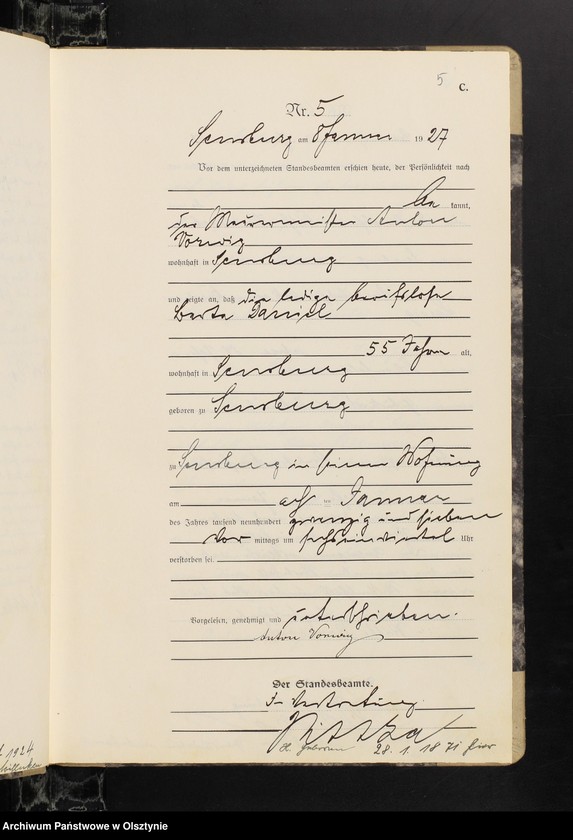 5
C.
Nr. 5
Sensburg am 8 Januar 1927
Vor dem unterzeichneten Standesbeamten erschien heute, der Persönlichkeit nach
be kannt,
der Maurermeister Anton
Vorwig
wohnhaft in Sensburg
und zeigte an, daß die ledige berufslose
Berta
55 Jahre alt,
wohnhaft in Sensburg
geboren zu Sensburg
zu Sensburg in seiner Wohnung
am acht ten Januar
des Jahres tausend neunhundert zwanzig und sieben
vor mittags um sechseinviertel Uhr
verstorben sei
Vorgelesen, genehmigt und unterschrieben.
Anton Vorwig
Der Standesbeamte.
In Vertretung.
28. 1. 1871 hier
1924
Archiwum Państwowe w Olsztynie
Archiwum Państwowe w Olsztynie